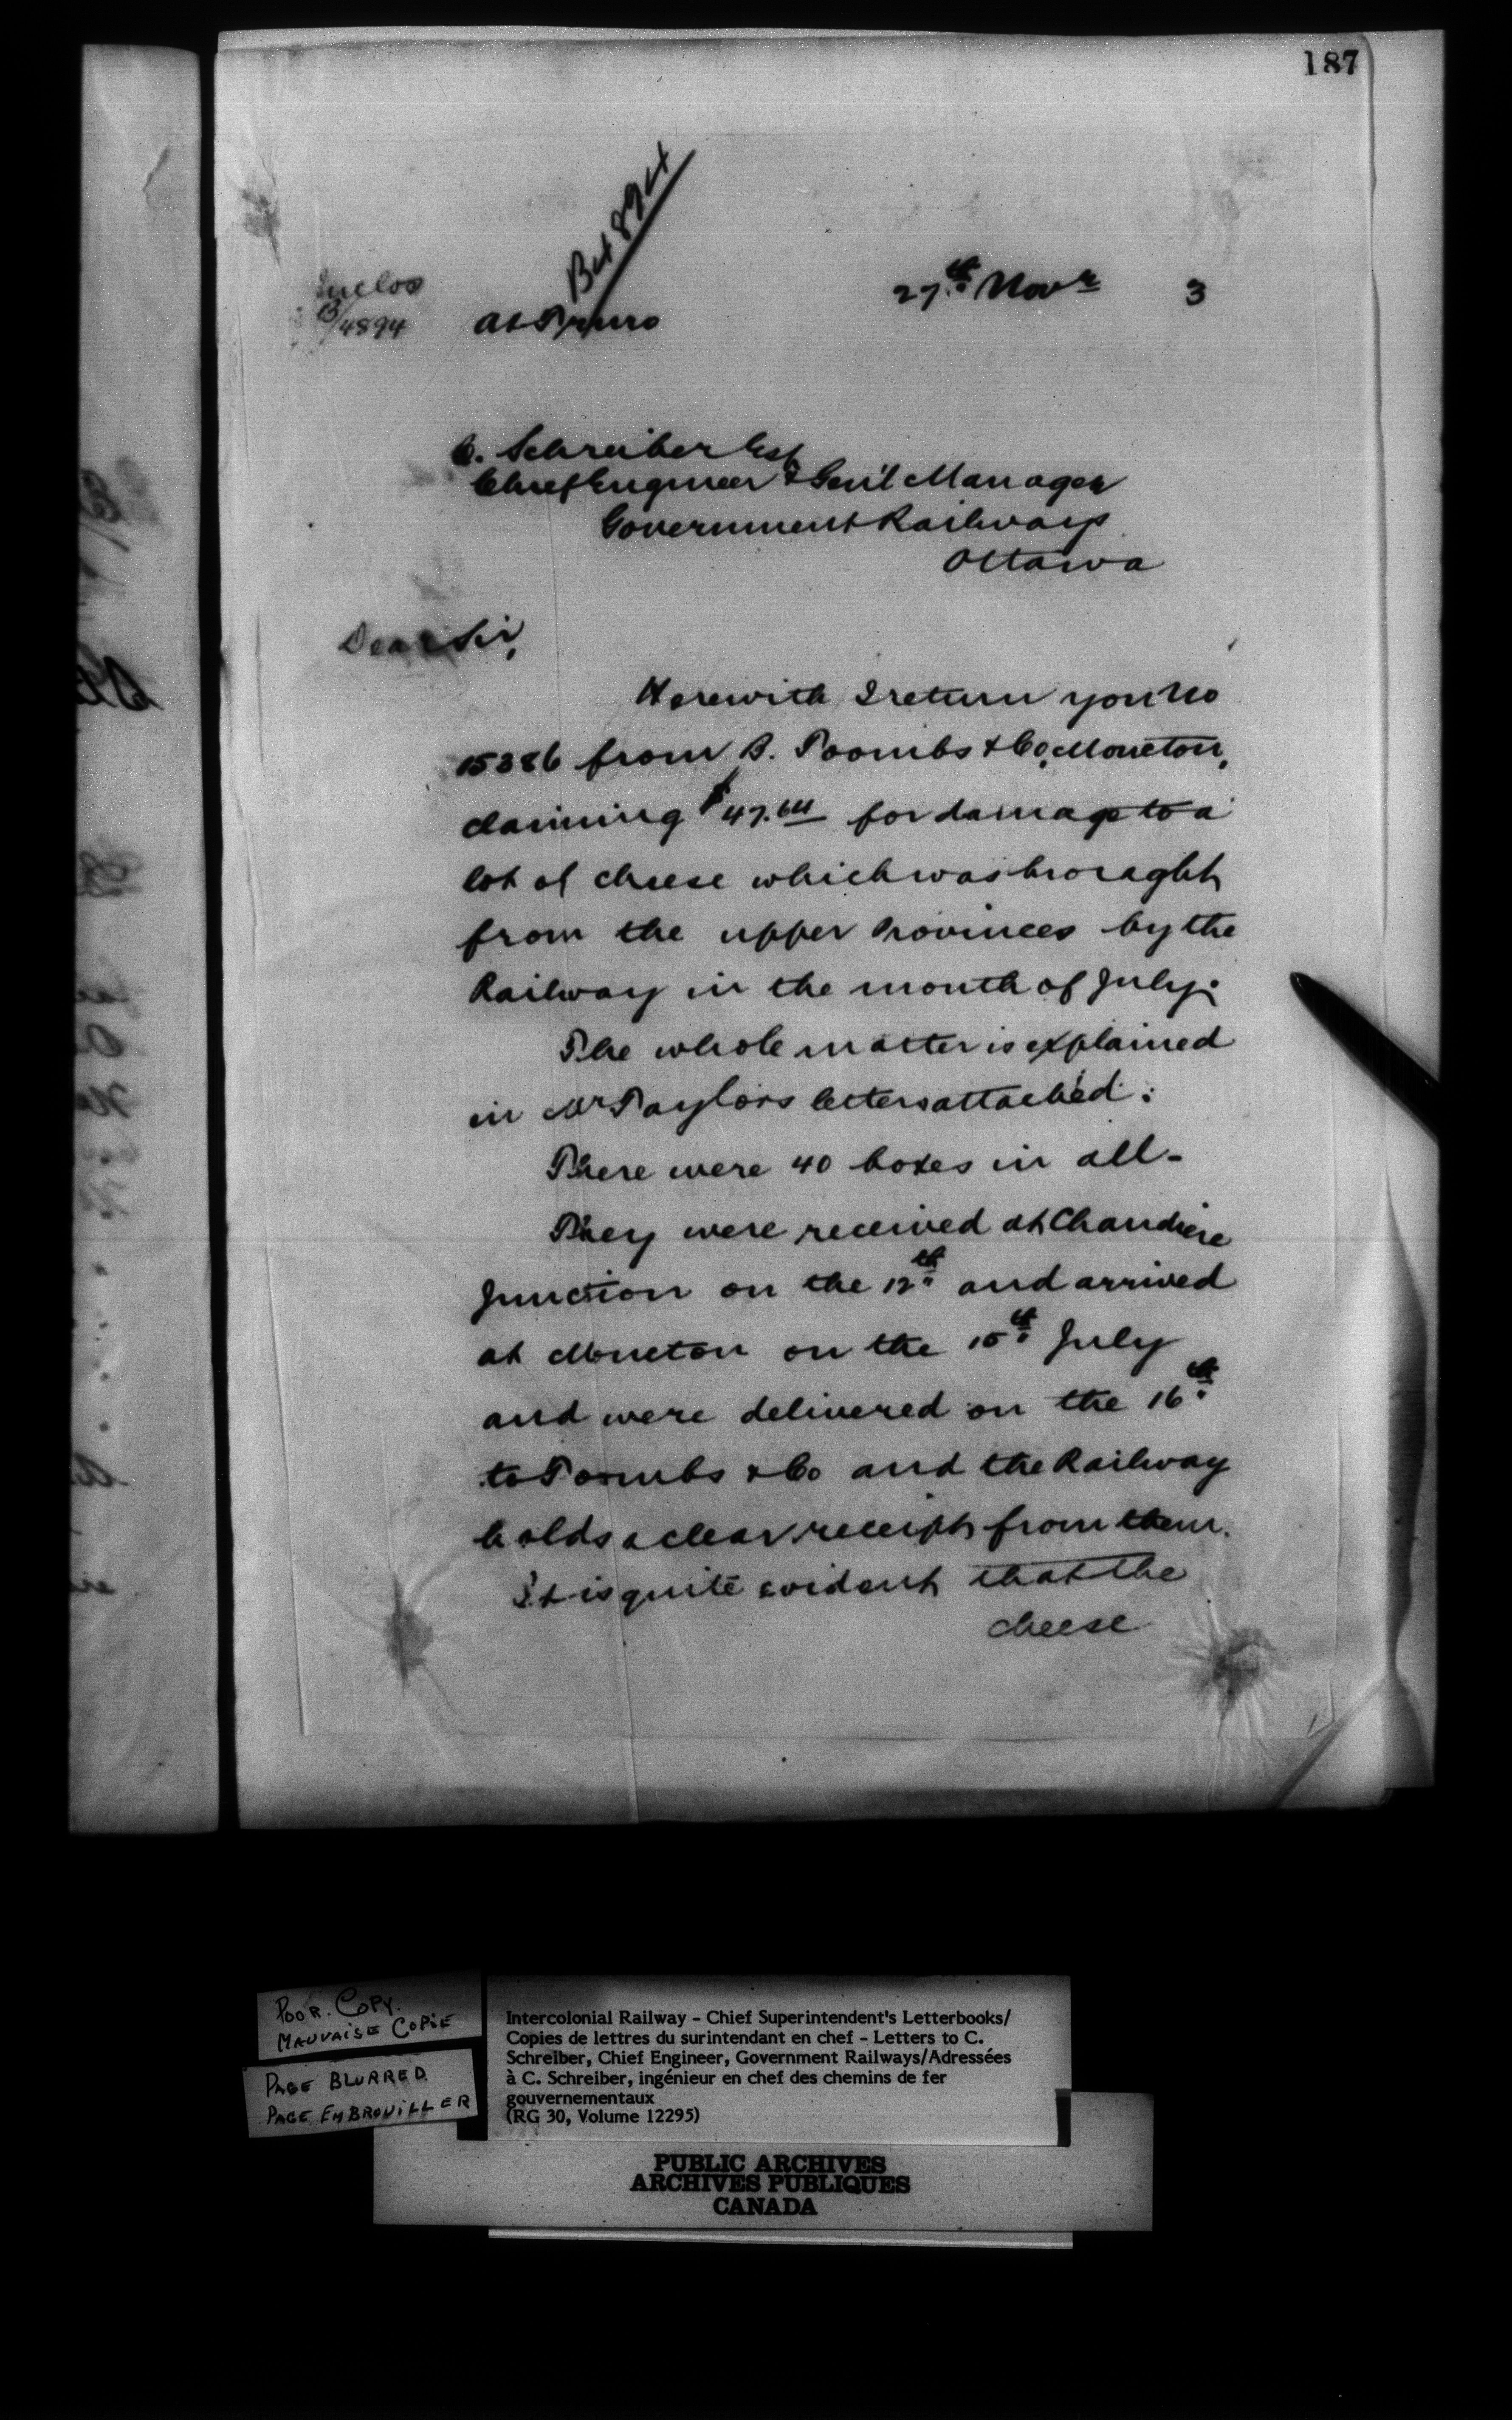 187
Bx4894
27th Novr 3
Inclos
B/4894
At Truro
C. Schreiber Esq
Chief Engineer & Gen'l Manager
Government Railways
Ottawa
Dear Sir,
Herewith I return you No
15386 from B. Toombs & Co, Moncton,
claiming $47.64 for damage to a
lot of cheese which was brought
from the upper Provinces by the
Railway in the month of July.
The whole matter is explained
in Mr Taylors letters attached.
There were 40 boxes in all-
They were received at Chaudiere
Junction on the 12th and arrived
at Moncton on the 15th July
and were delivered on the 16th
to Toombs & Co and the Railway
holds a clear receipt from them.
It is quite evident that the
cheese
POOR COPY.
MAUVAISE COPIE
PAGE BLURRED
PAGE EMBROUILLER
Intercolonial Railway - Chief Superintendent's Letterbooks/
Copies de lettres du surintendant en chef - Letters to C.
Schreiber, Chief Engineer, Government Railways/Adressées
à C. Schreiber, ingénieur en chef des chemins de fer
gouvernementaux
(RG 30, Volume 12295)
PUBLIC ARCHIVES
ARCHIVES PUBLIQUES
CANADA